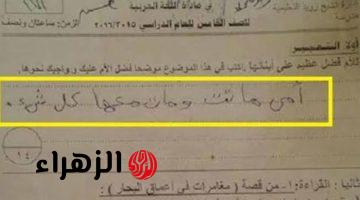 في مادة اللغة العربية
الزمن: ساعتان ونصف
للصف الخامس للعام الدراسي ٢٠١٦/٢٠١٥
التعبير
للأم فضل عظيم على أبنائها. اكتب في هذا الموضوع موضحا فضل الأم عليك وواجبك نحوها.
أمي ماتت ومات معها كل شيء.
١٤
الزهراء
ثانيا: القراءة: ١- من قصة (مغامرات في أعماق البحار)